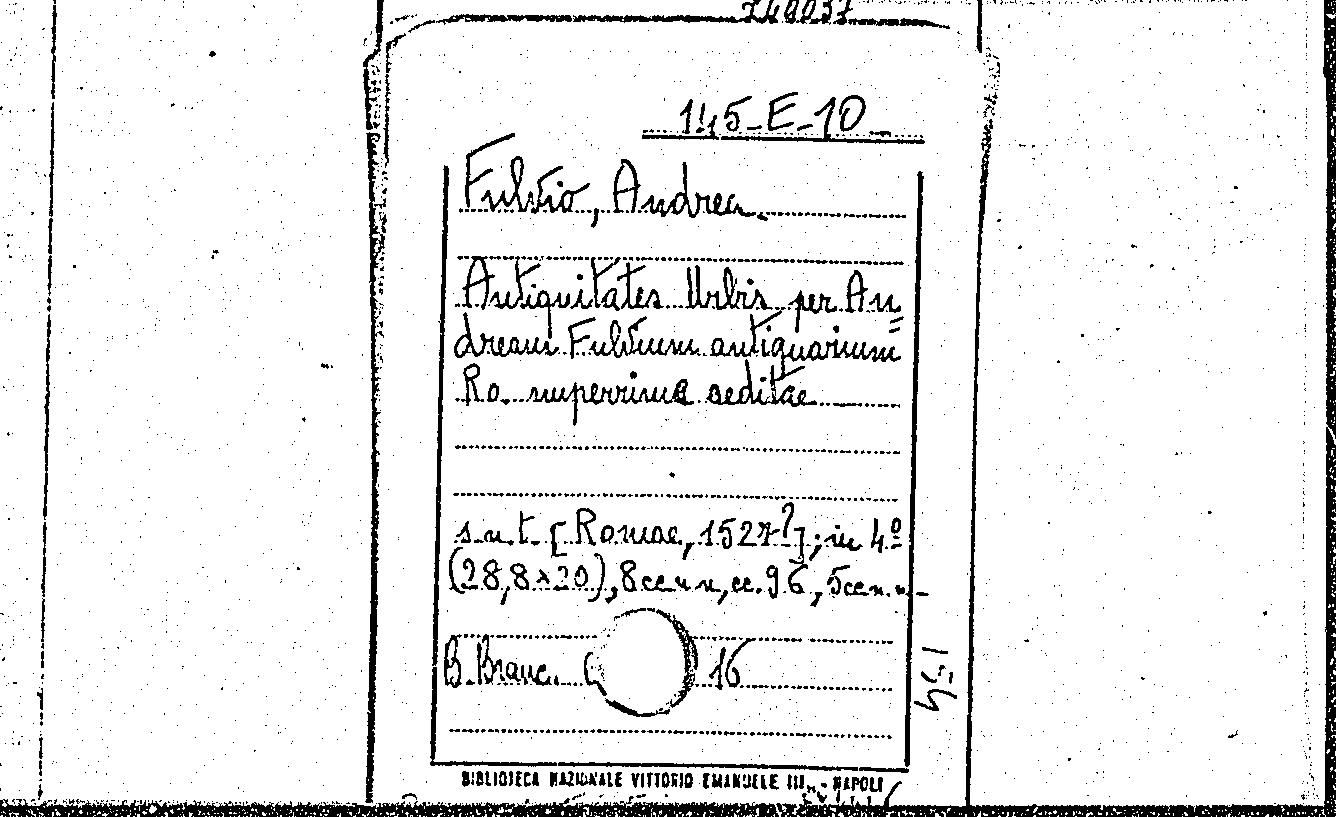 749037
145-E-10
Fulvio, Andrea.
Antiquitates Urbis per An=
dream Fulvium antiquarium
Ro. nuperrime aeditae
s.n.t. [Romae, 1527?]; in 4º
(28,8x20), 8 cc.n.n, cc. 96, 5 cc.n.n.
B. Branc. 16
BIBLIOTECA NAZIONALE VITTORIO EMANUELE III - NAPOLI